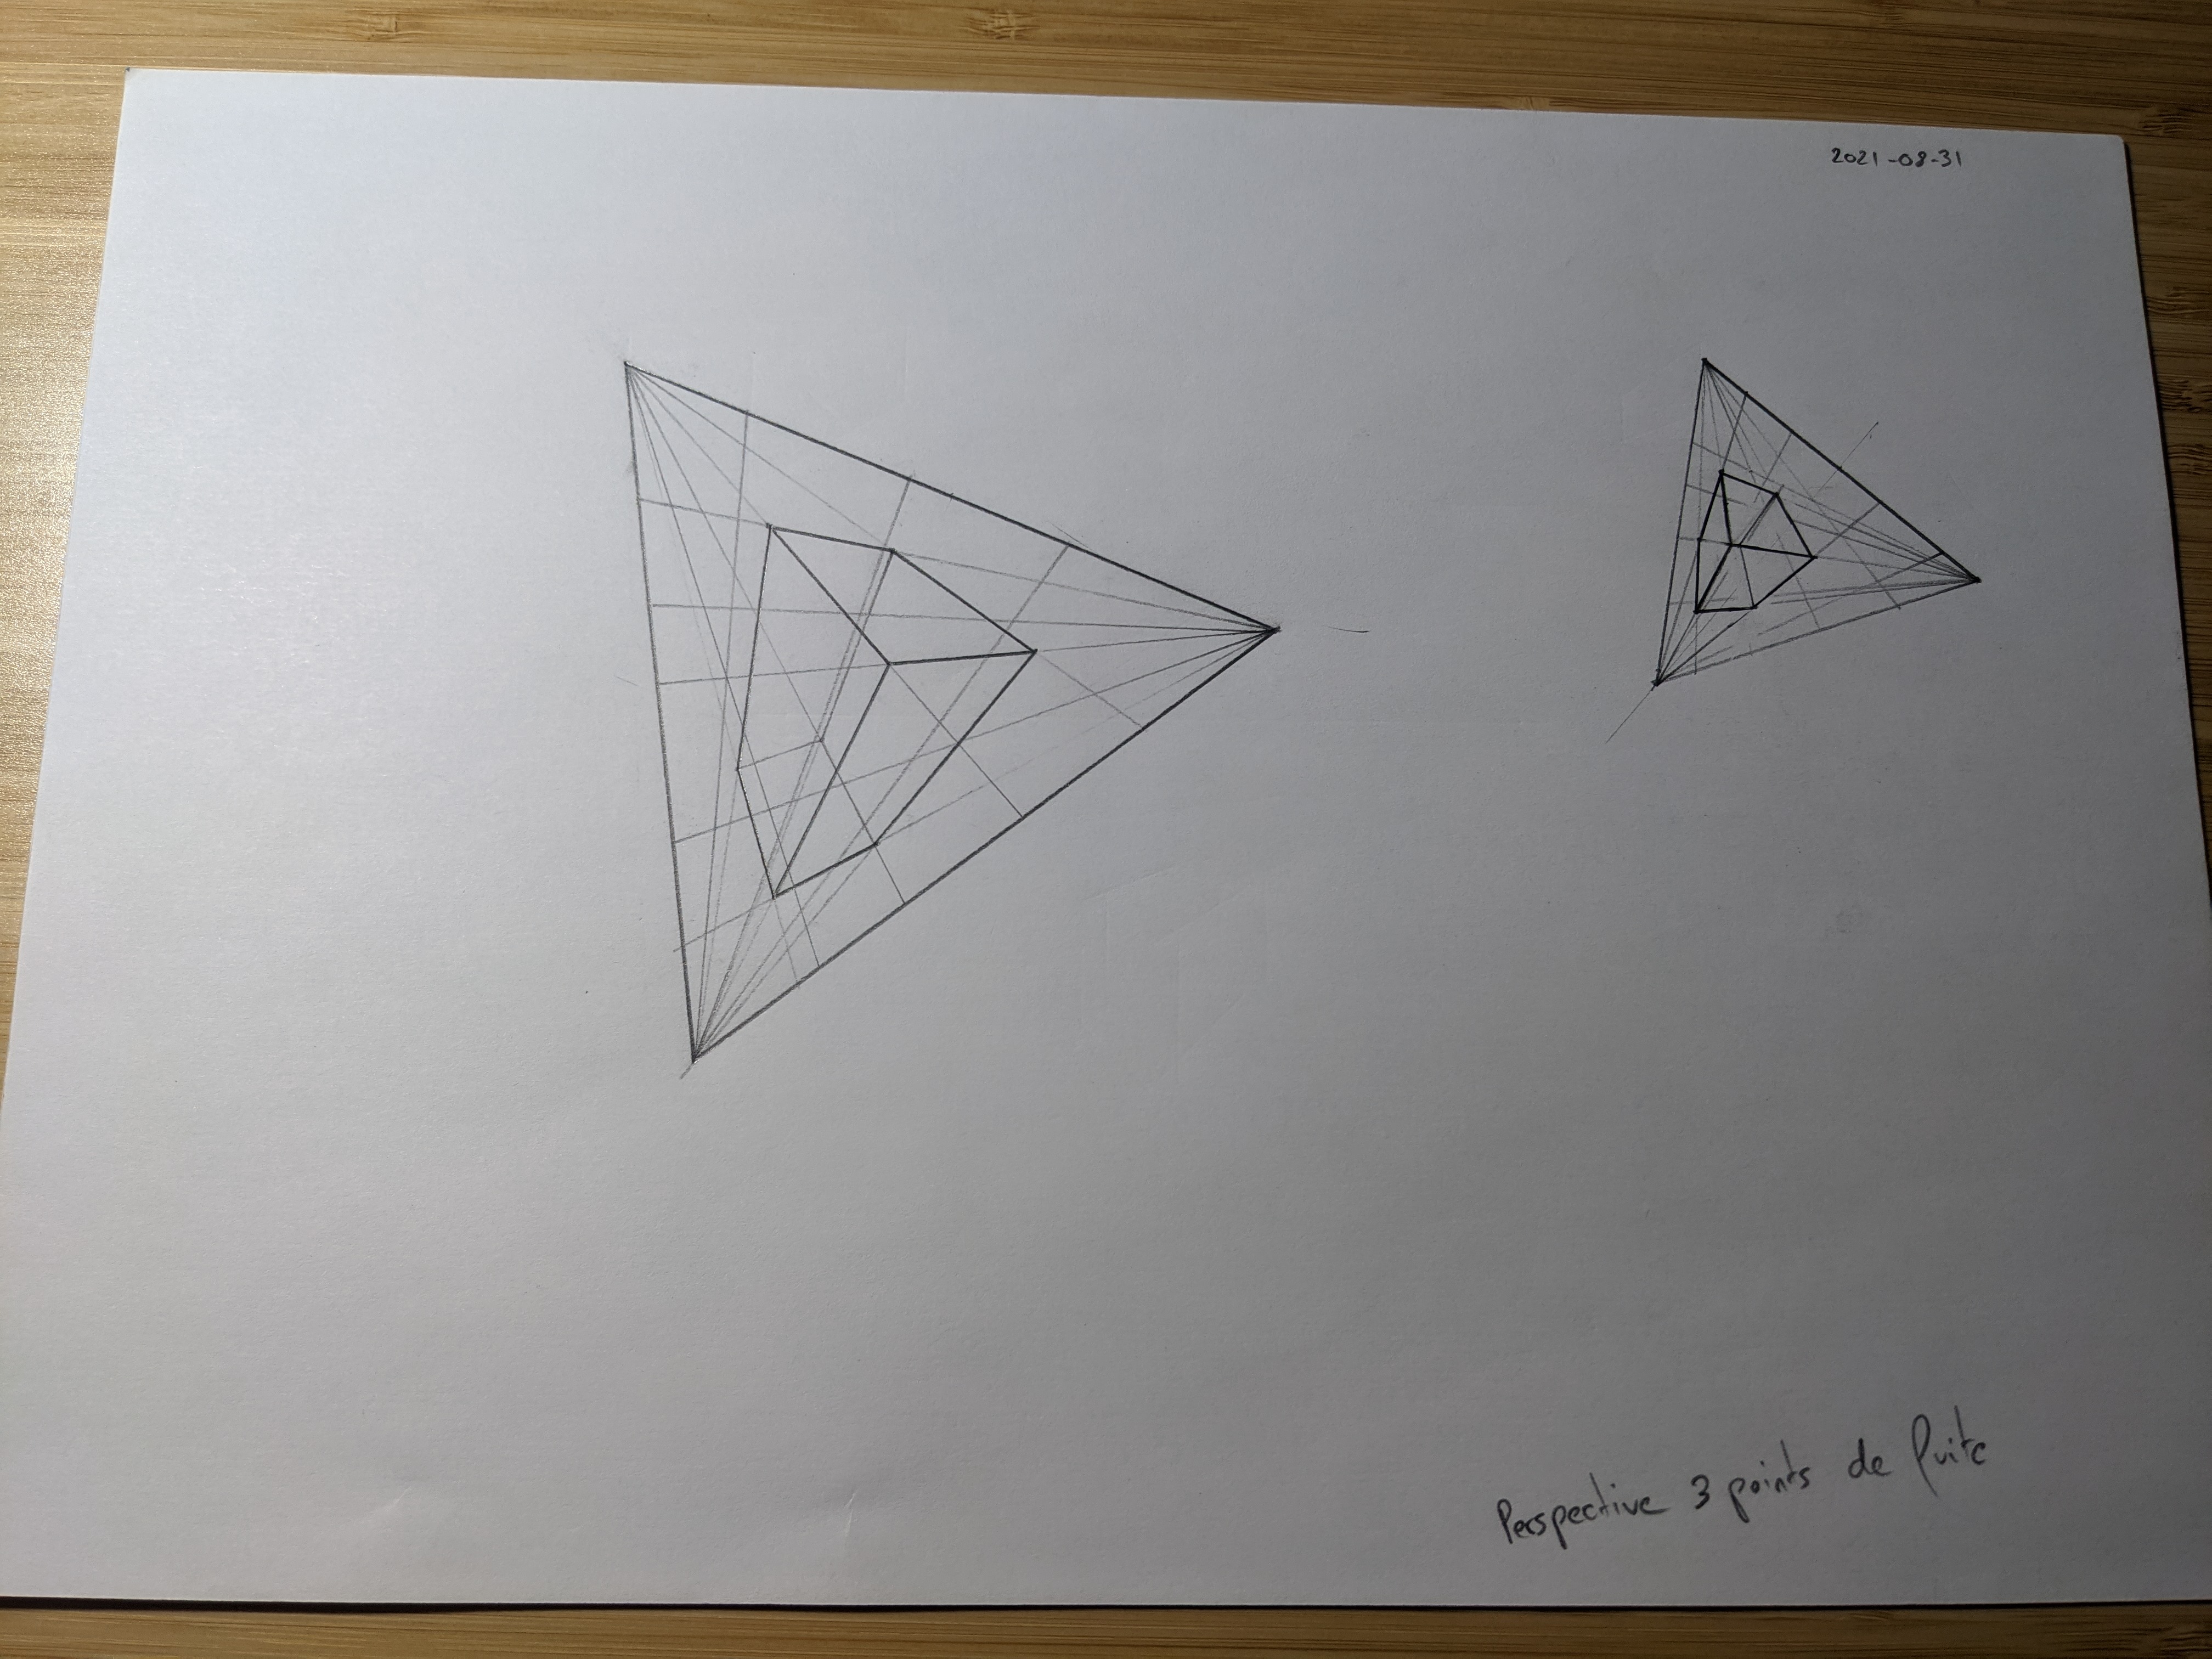 2021-08-31
Perspective 3 points de fuite